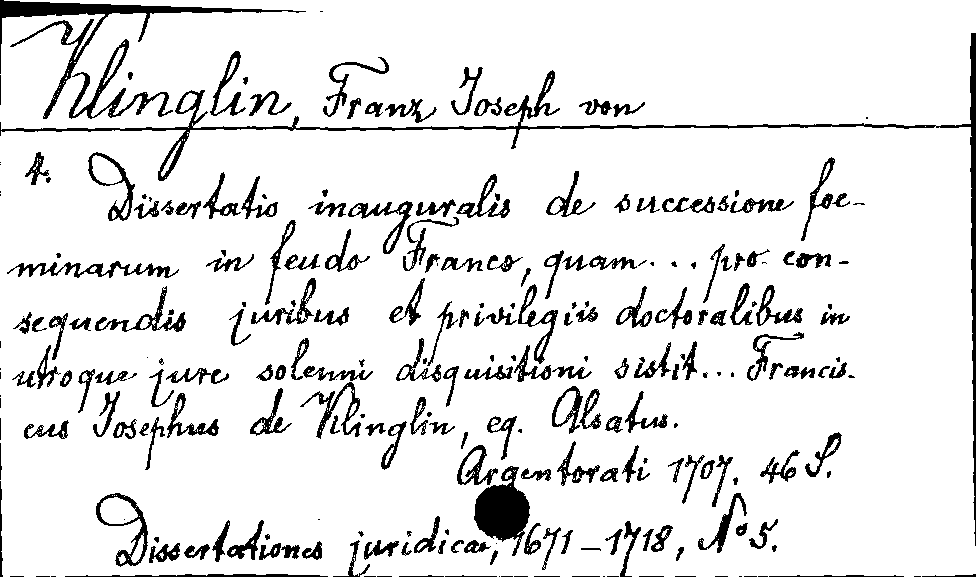 Klinglin, Franz Joseph von
4. Dissertatio inauguralis de successione foe-
minarum in feudo Franco, quam... pro con-
sequendis juribus et privilegiis doctoralibus in
utroque jure solenni disquisitioni sistit... Francis-
cus Josephus de Klinglin, eq. Alsatus.
Argentorati 1707. 46 S.
Dissertationes juridicae, 1671-1718, No 5.